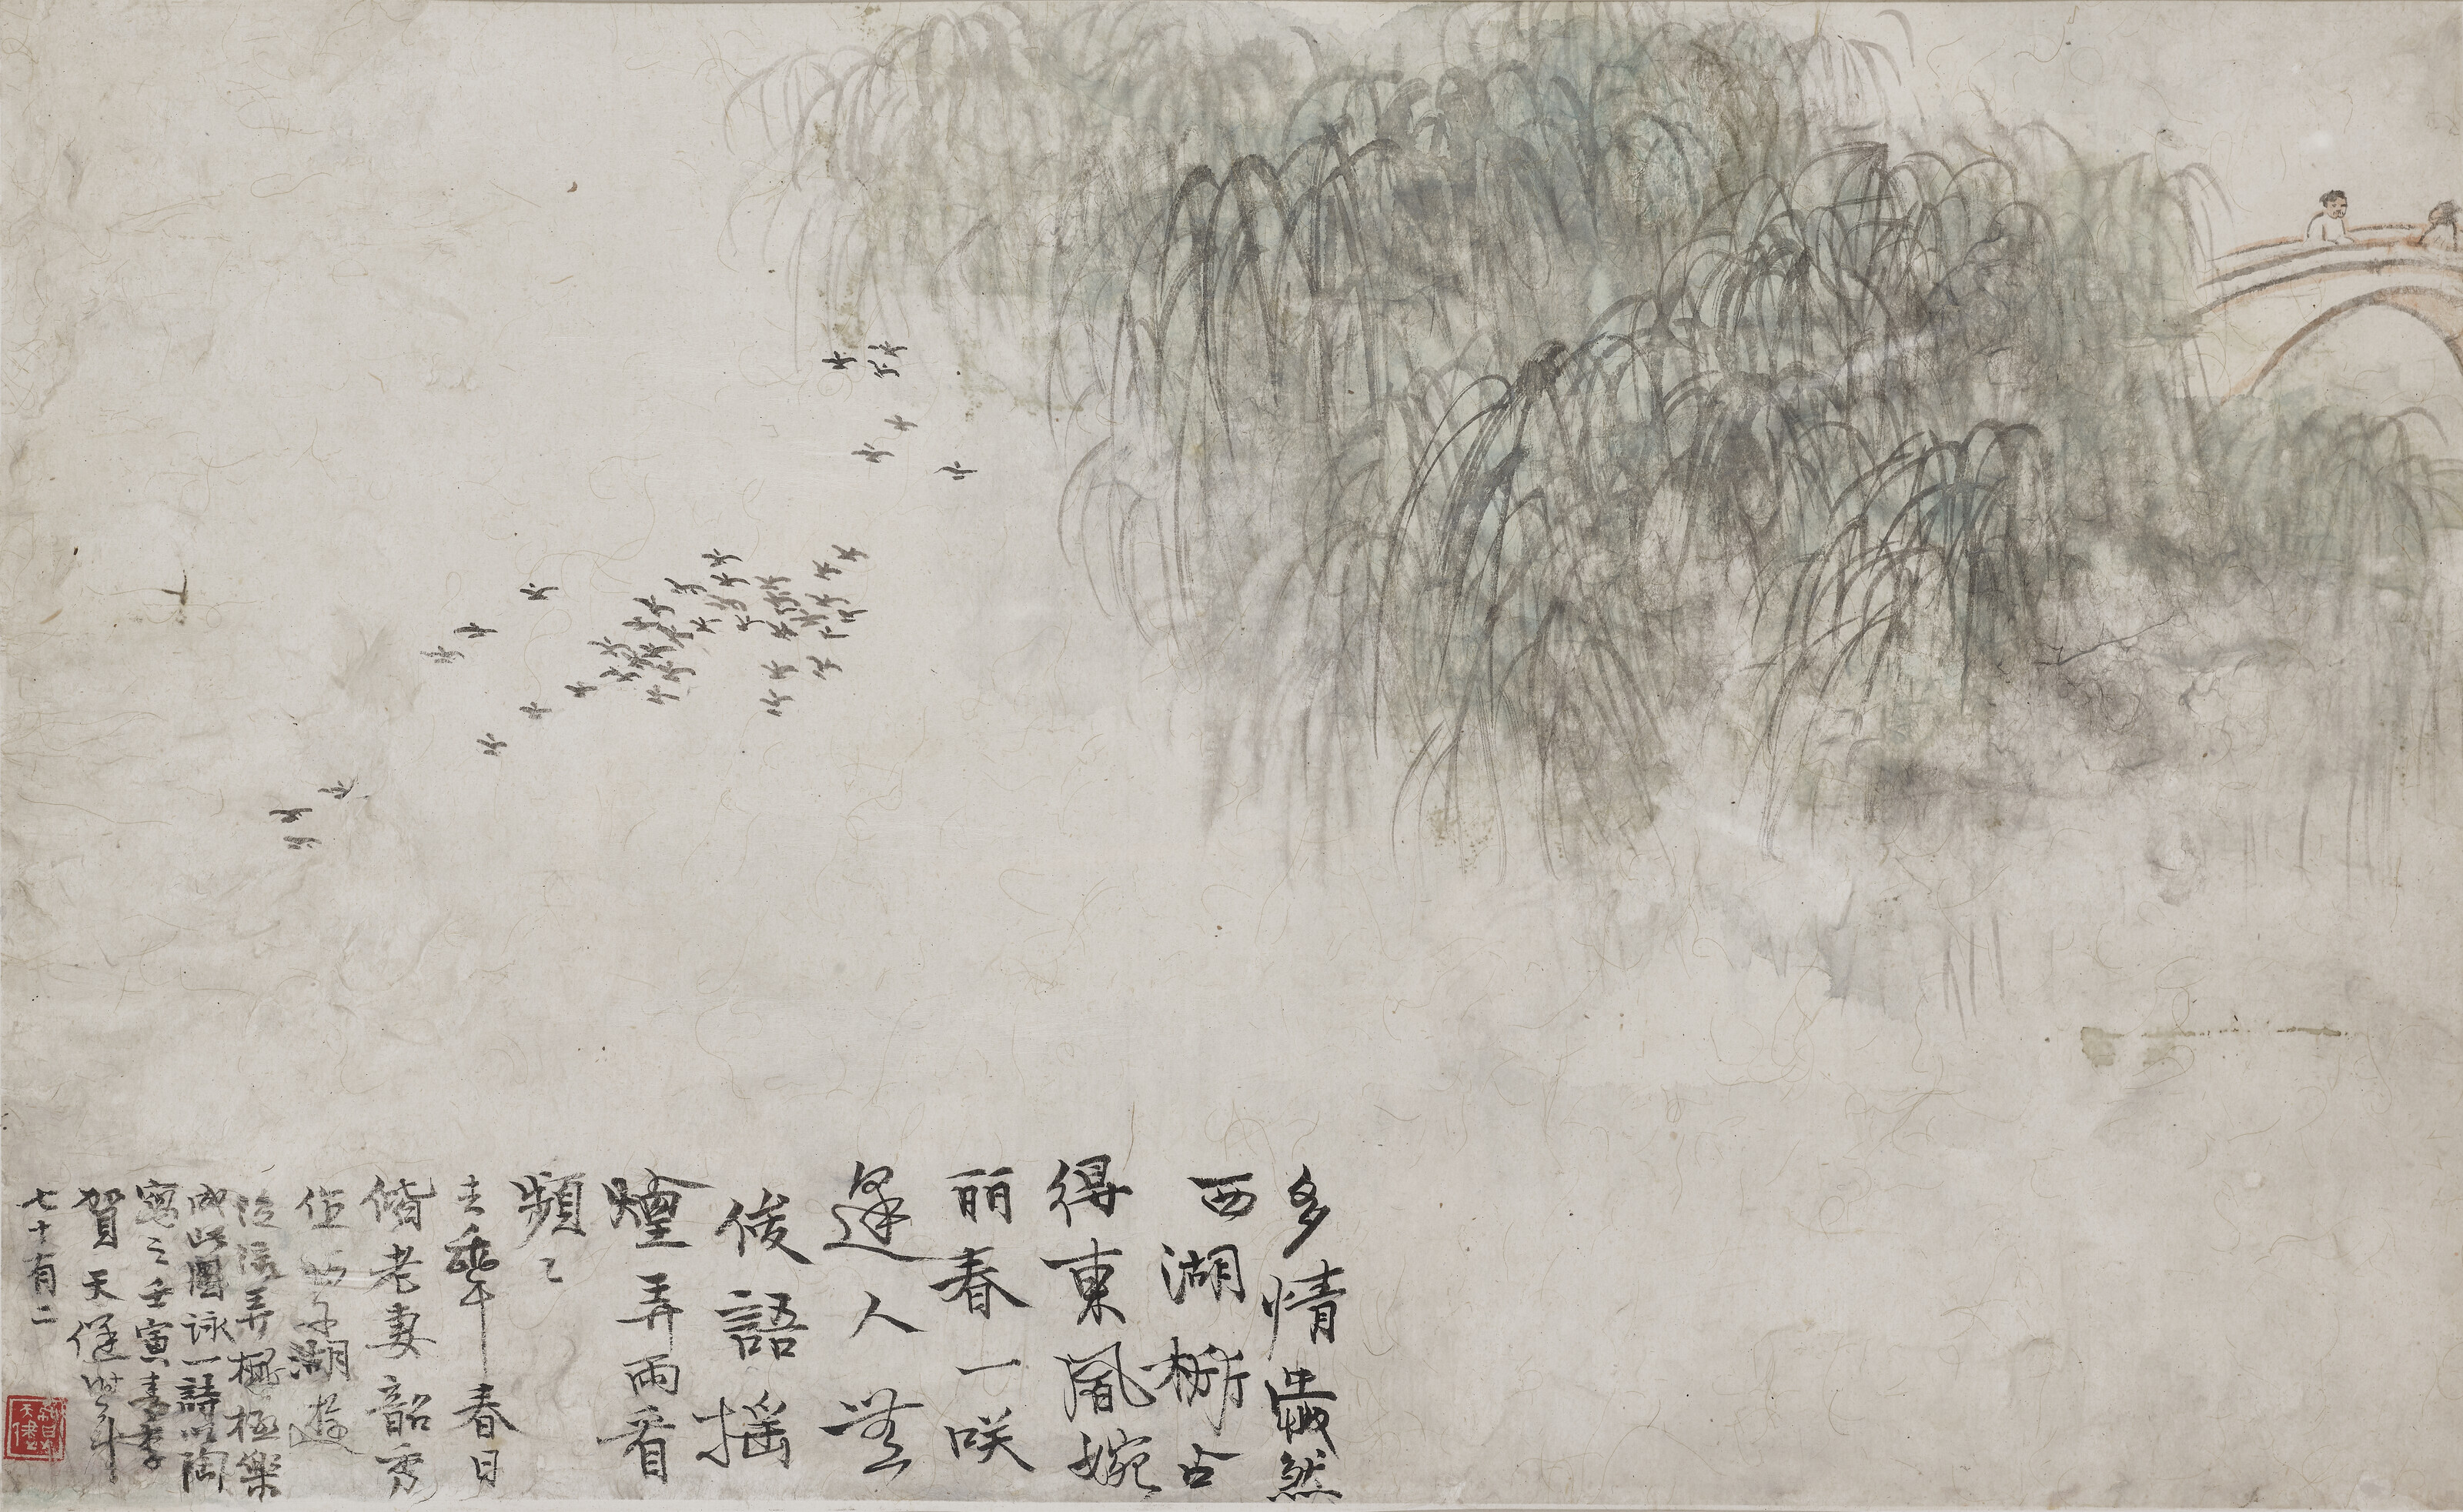 多情然
西湖柳占
得東風婉
丽春一咲
逢人無
俊語搖
煙弄雨看
頻々
去年春日
偕老妻韶秀
作西子湖遊
弄極樂
成此圖詠一詩以陶
寫之壬寅春季
賀天健時年
七十有二